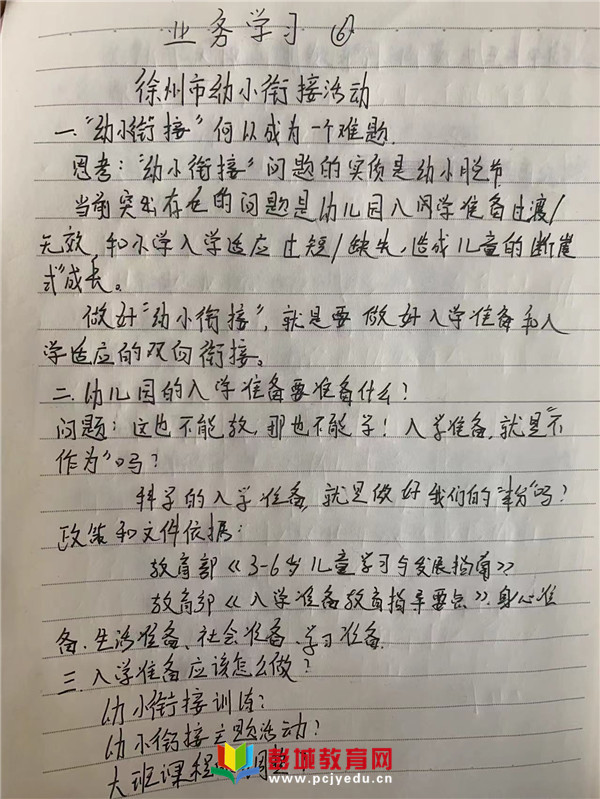 业务学习 ⑥
徐州市幼小衔接活动
一."幼小衔接"何以成为一个难题.
思考:"幼小衔接"问题的实质是幼小脱节
当前突出存在的问题是幼儿园入学准备过渡/
无效,和小学入学适应过短/缺失,造成儿童的断崖
式"成长。
做好"幼小衔接",就是要做好入学准备和入
学适应的双向衔接。
二.幼儿园的入学准备要准备什么?
问题:这也不能教,那也不能学!入学准备,就是"不
作为"吗?
科学的入学准备,就是做好我们的"本分"吗?
政策和文件依据:
教育部《3-6岁儿童学习与发展指南》
教育部《入学准备教育指导要点》.身心准
备、生活准备、社会准备、学习准备.
三.入学准备应该怎么做?
幼小衔接训练?
幼小衔接主题活动?
大班课程 调整
彭城教育网
www.pcjyedu.cn